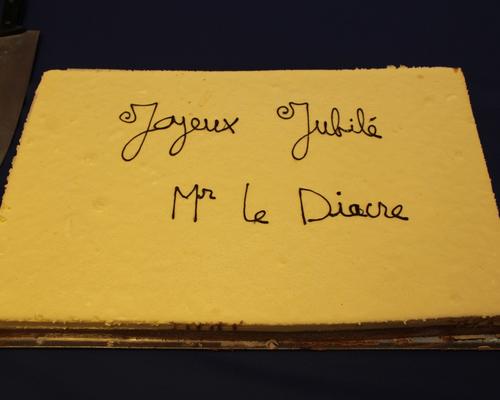 Joyeux Jubilé
Mr le Diacre